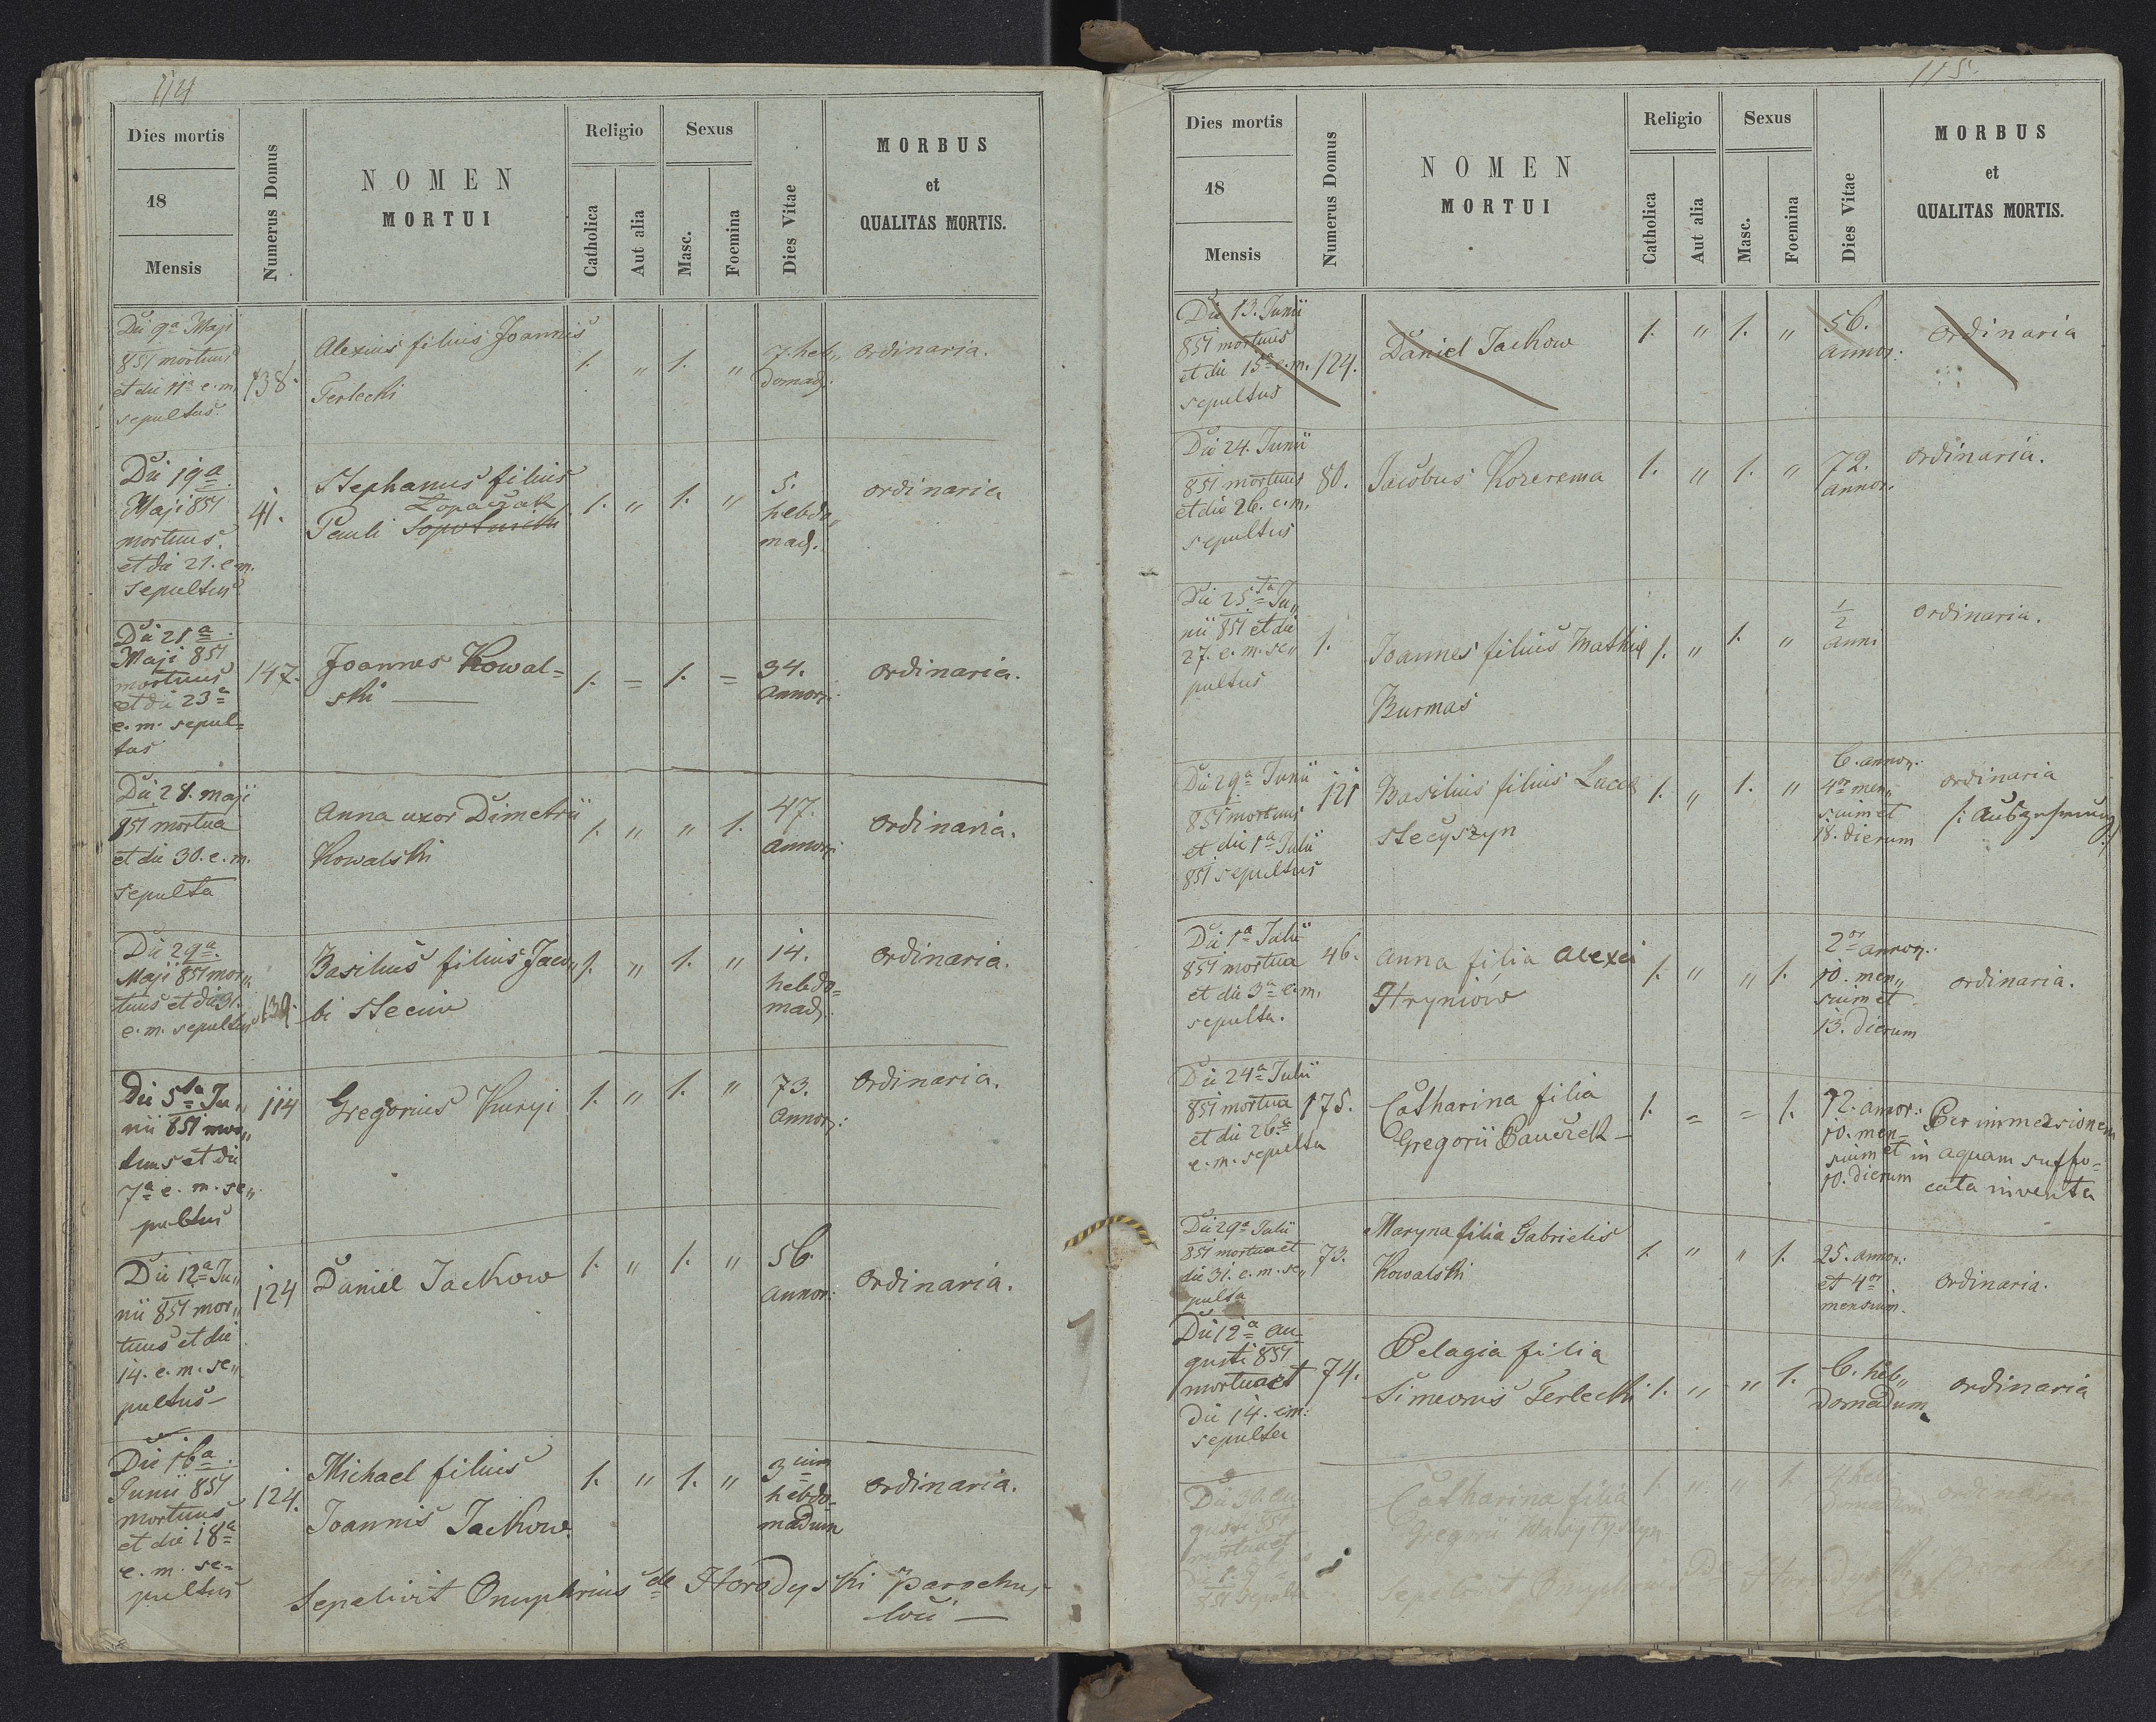 114
Dies mortis
18
Mensis
Numerus Domus
NOMEN
MORTUI
Religio
Catholica
Aut alia
Sexus
Masc.
Foemina
Dies Vitae
MORBUS
et
QUALITAS MORTIS.
Die 9a Maji
851 mortuus
et die 11a e. m.
sepultus.
138.
Alexius filius Joannis
Terlecki
1. " 1. "
7. heb„
domad.
ordinaria.
Die 19a
Maji 851
mortuus
et die 21. e. m.
sepultus
41.
Stephanus filius
Łopaczak
Pauli
1. " 1. "
5.
hebdo„
mad.
ordinaria
Die 21a
Maji 851
mortuus
et die 23a
e. m. sepul=
tus
147.
Joannes Kowal=
ski
1. = 1. =
34.
annor:
ordinaria.
Die 28. maji
851 mortua
et die 30. e. m.
sepulta
Anna uxor Dimetrii
Kowalski
1. " " 1.
47.
annor:
ordinaria.
Die 29a
Maji 851 mor„
tuus et die 31.
e. m. sepultus
139.
Basilius filius Jaco„
bi Steciw
1. " 1. "
14.
hebdo=
mad.
ordinaria.
Die 5ta Ju„
nii 851 mor„
tuus et die
7a e. m. se„
pultus
114
Gregorius Kuryj
1. " 1. "
73.
annor:
ordinaria.
Die 12a Ju„
nii 851 mor„
tuus et die
14. e. m. se„
pultus
124
Daniel Jackow
1. " 1. "
56
annor:
ordinaria.
Die 16a
Junii 851
mortuus
et die 18a
e. m. se=
pultus
124.
Michael filius
Joannis Jackow
1. " 1. "
3ium
hebdo=
madum
ordinaria.
Sepelivit Onuphrius de Horodyski Parochus
loci
115
Dies mortis
18
Mensis
Numerus Domus
NOMEN
MORTUI
Religio
Catholica
Aut alia
Sexus
Masc.
Foemina
Dies Vitae
MORBUS
et
QUALITAS MORTIS.
Die 13. Junii
851 mortuus
et die 15a e. m.
sepultus
124.
Daniel Jackow
1. " 1. "
56.
annor:
ordinaria
Die 24. Junii
851 mortuus
et die 26. e. m.
sepultus
80.
Jacobus Korerema
1. " 1. "
72.
annor.
ordinaria.
Die 25ta Ju„
nii 851 et die
27. e. m. se„
pultus
1.
Joannes filius Mathiae
Burmas
1. " 1. "
1/2
anni
ordinaria.
Die 29a Junii
851 mortuus
et die 1a Julii
851 sepultus
121
Basilius filius Lucae
Stecyszyn
1. " 1. "
6. annor:
4or men„
sium et
18. dierum
ordinaria
/: Auszehrung :/
Die 1a Julii
851 mortua
et die 3a e. m.
sepulta.
46.
Anna filia Alexii
Hryniow
1. " " 1.
2or annor:
10. men„
sium et
13. dierum
ordinaria.
Die 24a Julii
851 mortua
et die 26.a
e. m. sepulta
175.
Catharina filia
Gregorii Pauczek
1. = = 1.
12. annor:
10. men=
sium et
10. dierum
Per immersionem
in aquam suffo=
cata inventa
Die 29a Julii
851 mortua et
die 31. e. m. se„
pulta
73.
Maryna filia Gabrielis
Kowalski
1. " " 1.
25. annor:
et 4or
mensium.
ordinaria.
Die 12a Au=
gusti 851
mortua et
die 14. e. m:
sepulta
74.
Pelagia filia
Simeonis Terlecki
1. " " 1.
6. heb„
domadum
ordinaria
Die 30. Au
gusti 851
mortua et
851 sepulta
Catharina filia
Gregorii Wasylyszyn
1. " " 1.
4. heb
domadum
ordinaria
Sepelivit Onuphrius De Horodyski parochus
loci